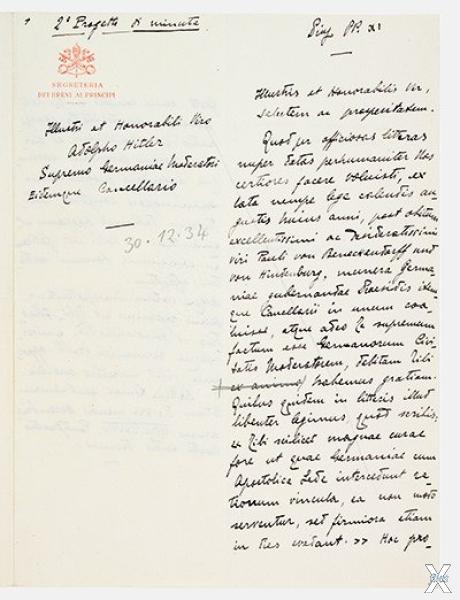 2° Progetto di minuta
SEGRETERIA
DEI BREVI AI PRINCIPI
Illustri et Honorabili Viro
Adolpho Hitler
Supremo Germaniae Moderatori
Eidemque Cancellario
30.12.34
Pius PP. XI
Illustris et Honorabilis Vir,
salutem ac prosperitatem.
Quod per officiosas litteras
nuper datas perhumaniter Nos
certiores facere voluisti, ex
lata nempe lege calendis au-
gustis huius anni, post obitum
excellentissimi ac desideratissimi
viri Pauli von Beneckendorff und
von Hindenburg, munera Germa-
niae gubernandae Praesidis idem-
que Cancellarii in unum coa-
luisse, atque adeo Te supremum
factum esse Germanorum Civi-
tatis Moderatorem, debitam Tibi
ex animo habemus gratiam.
Quibus quidem in litteris illud
libenter legimus, quod scribis:
ex Tibi scilicet magnae curae
fore ut quae Germaniae cum
Apostolica Sede intercedunt ra-
tionum vincula, ea non modo
serventur, sed firmiora etiam
in dies evadant. >> Hoc pro-